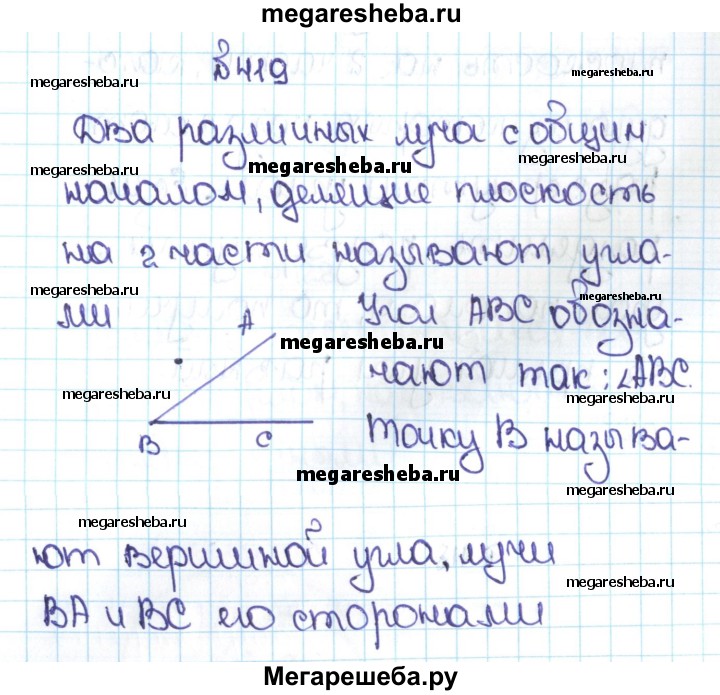 megaresheba.ru
№419
megaresheba.ru
megaresheba.ru
Два различных луча с общим
megaresheba.ru
megaresheba.ru
megaresheba.ru
началом, делящие плоскость
на 2 части называют угла-
megaresheba.ru
megaresheba.ru
ми
A
Угол ABC обозна-
megaresheba.ru
чают так: ∠ABC.
megaresheba.ru
megaresheba.ru
B
C
Точку B называ-
megaresheba.ru
megaresheba.ru
megaresheba.ru
ют вершиной угла, лучи
megaresheba.ru
BA и BC его сторонами
Мегарешеба.ру